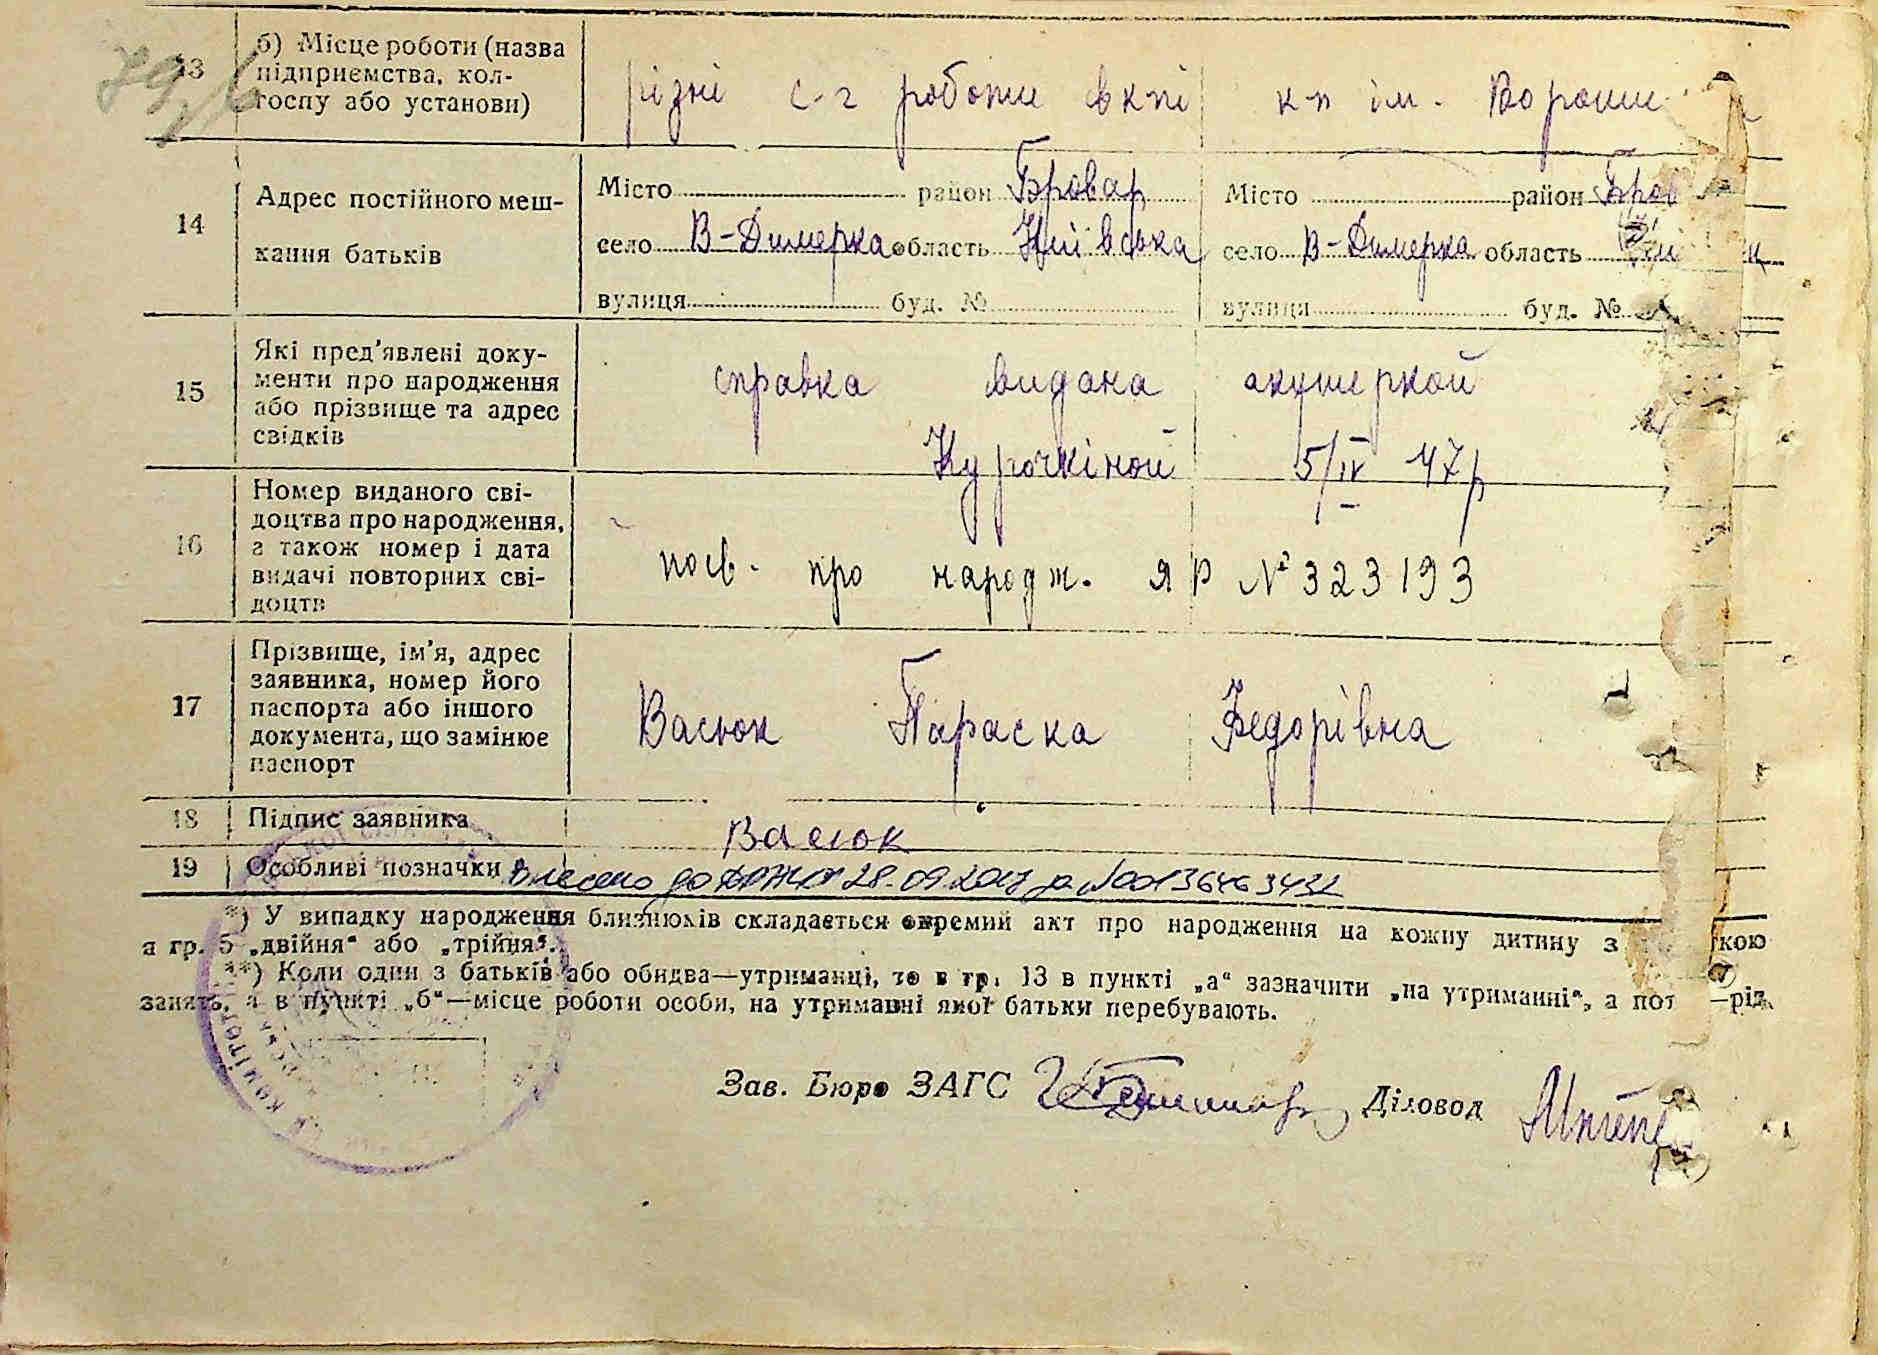 79
13 б) Місце роботи (назва підприємства, колгоспу або установи) різні с-г роботи в кпі к-п ім.
14 Адрес постійного мешкання батьків
Місто район Бровар Місто район Бров
село В-Димерка область Київська село В-Димерка область
вулиця буд. № вулиця буд. №
15 Які пред'явлені документи про народження або прізвище та адрес свідків
справка видана акушеркой
Курочкіной 5/IV 47р
16 Номер виданого свідоцтва про народження, а також номер і дата видачі повторних свідоцтв
посв. про народж. ЯР № 323193
17 Прізвище, ім'я, адрес заявника, номер його паспорта або іншого документа, що замінює паспорт
Васюк Параска Федорівна
18 Підпис заявника Васюк
19 Особливі позначки Внесено до ДРАЦСГ 28.09.2017 за №00136463432
*) У випадку народження близнюків складається окремий акт про народження на кожну дитину з кою
а гр. 5 „двійня“ або „трійня“.
**) Коли один з батьків або обидва—утриманці, то в гр. 13 в пункті „а“ зазначити „на утриманні“, а пот —рід
занять, а в пункті „б“—місце роботи особи, на утриманні якої батьки перебувають.
Зав. Бюро ЗАГС Діловод